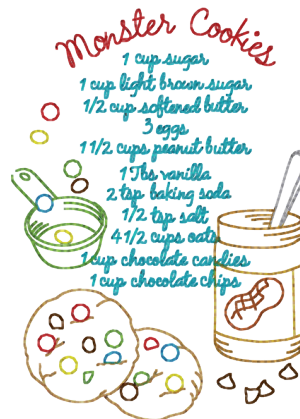 Monster Cookies
1 cup sugar
1 cup light brown sugar
1/2 cup softened butter
3 eggs
1 1/2 cups peanut butter
1 Tbs vanilla
2 tsp baking soda
1/2 tsp salt
4 1/2 cups oats
1 cup chocolate candies
1 cup chocolate chips